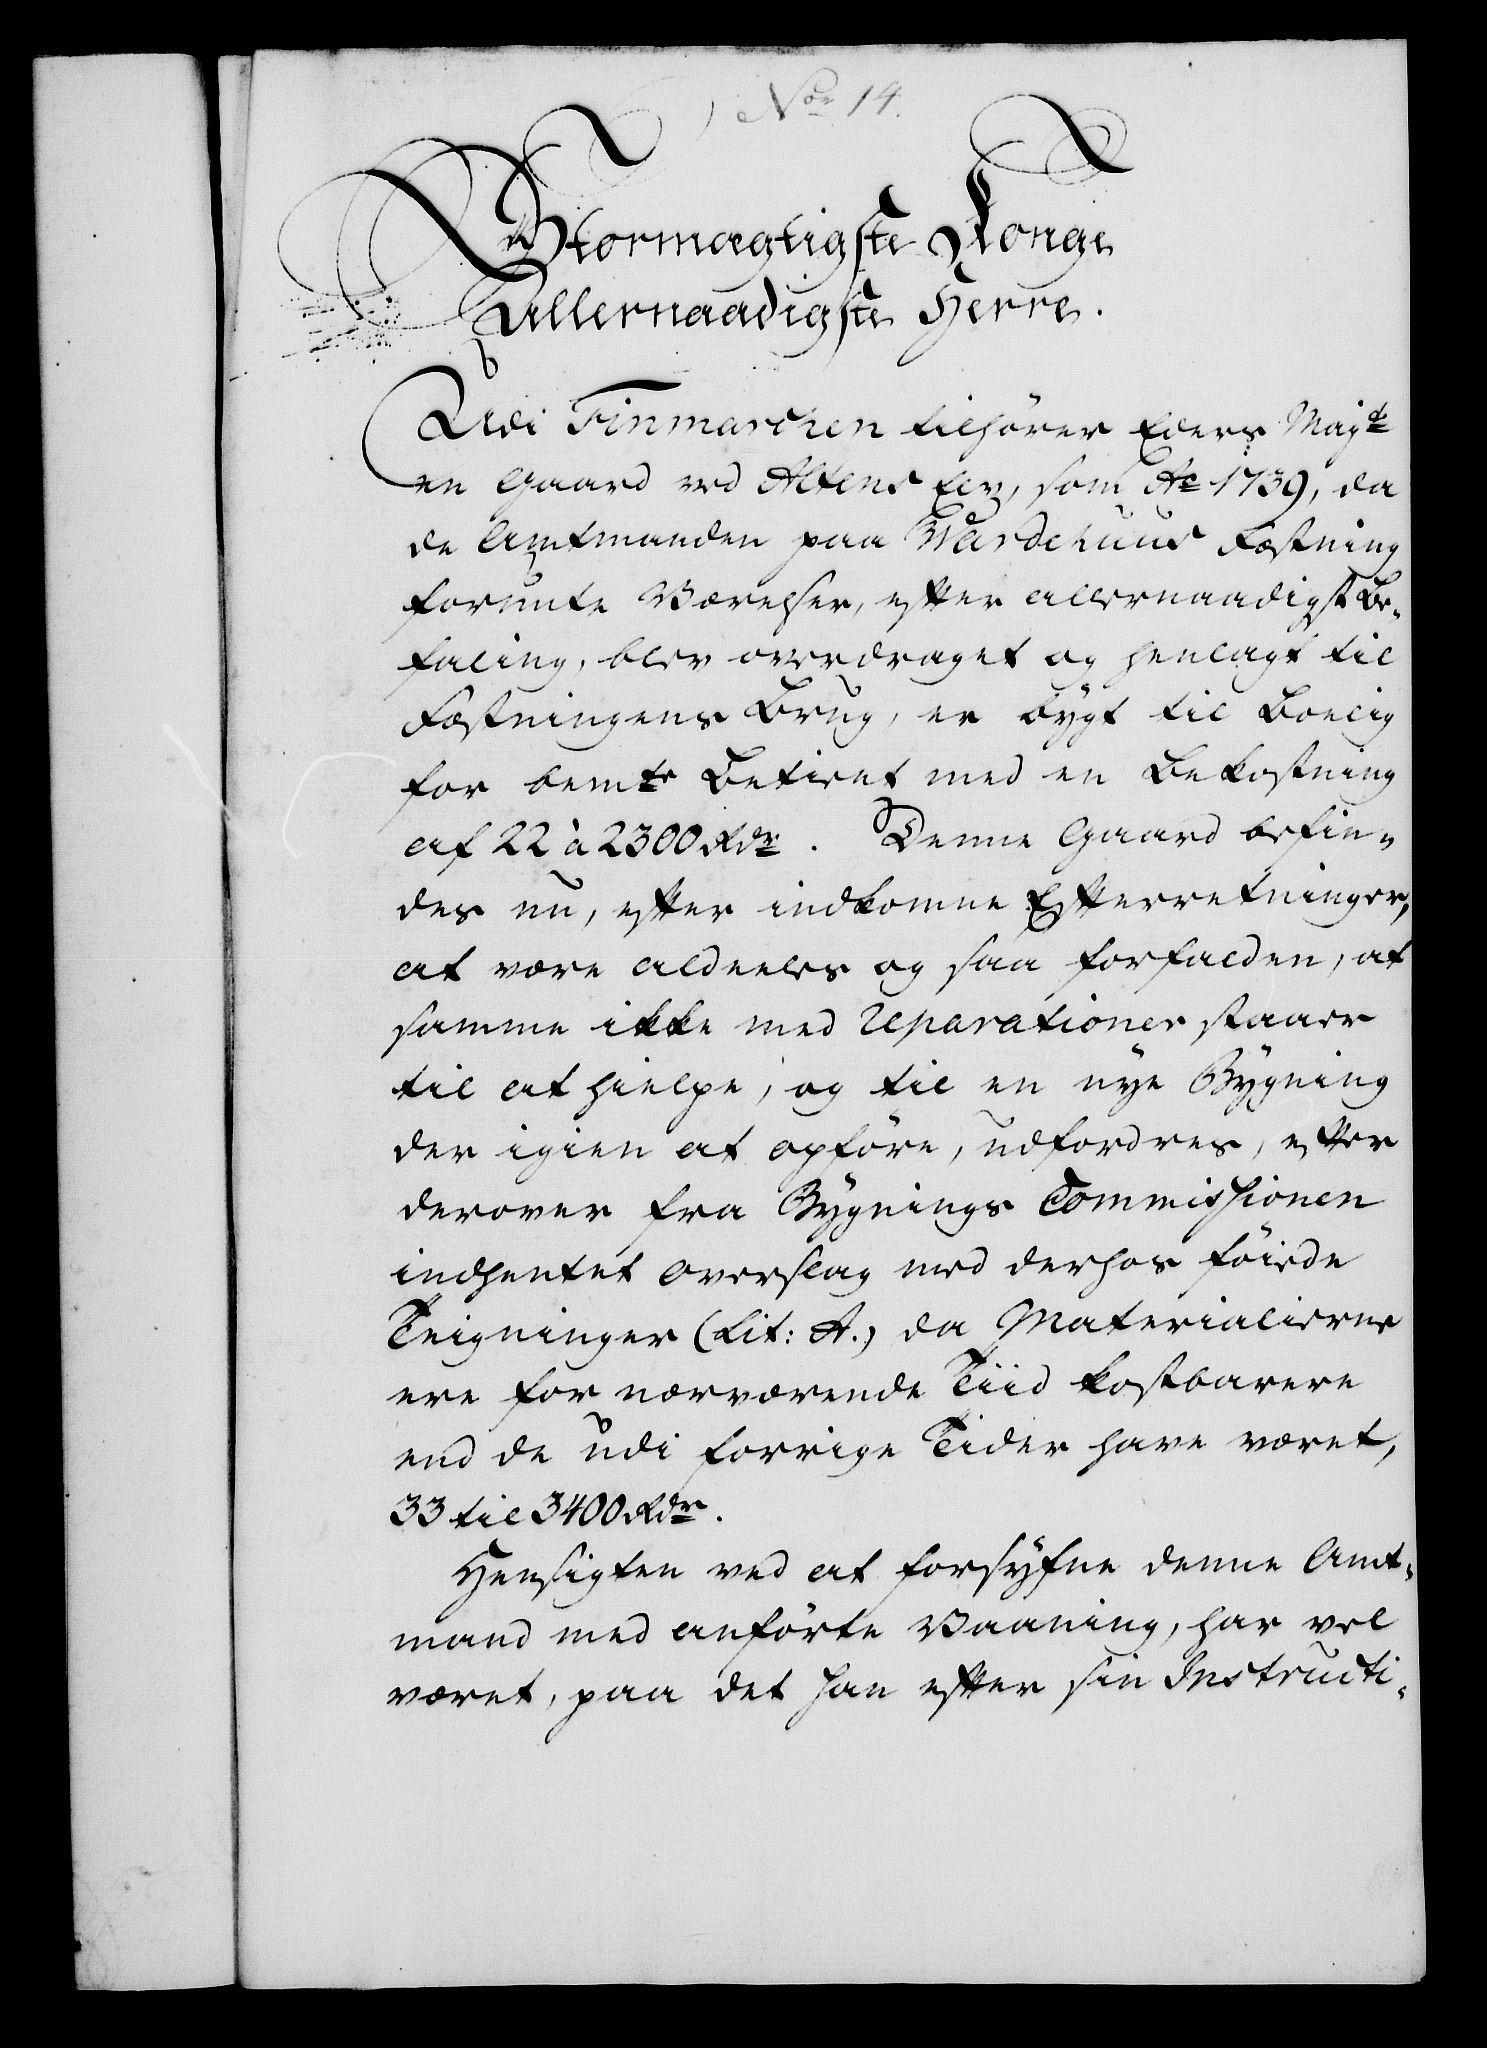 Nor 14.
Stormægtigste Konge
Allernaadigste Herre.
Udi Finmarchen tilhører Eders Majt
en Gaard ved Altens Elv, som Ao 1739, da
de Amtmanden paa Wardehuus Fæstning
forundte Værelser, efter allernaadigst Be-
faling, blev overdraget og henlagt til
Fæstningens Brug, er bygt til Boelig
for bemte Betient med en Bekostning
af 22 à 2300 Rdr. Denne Gaard befin-
des nu, efter indkomne Efterretninger,
at være aldeeles og saa forfalden, at
samme ikke med reparationer staaer
til at hielpe, og til en nye Bygning
der igien at opføre, udfordres, efter
derover fra Bygnings Commissionen
indhentet Overslag med derhos føiede
Teigninger (Lit: A.) da Materialierne
ere for nærværende Tiid kostbarere
end de udi forrige Tider have været,
33 til 3400 Rdr.
Hensigten ved at forsyfne denne Amt-
mand med anførte Vaaning, har vel
været, paa det han efter sin Instructi-